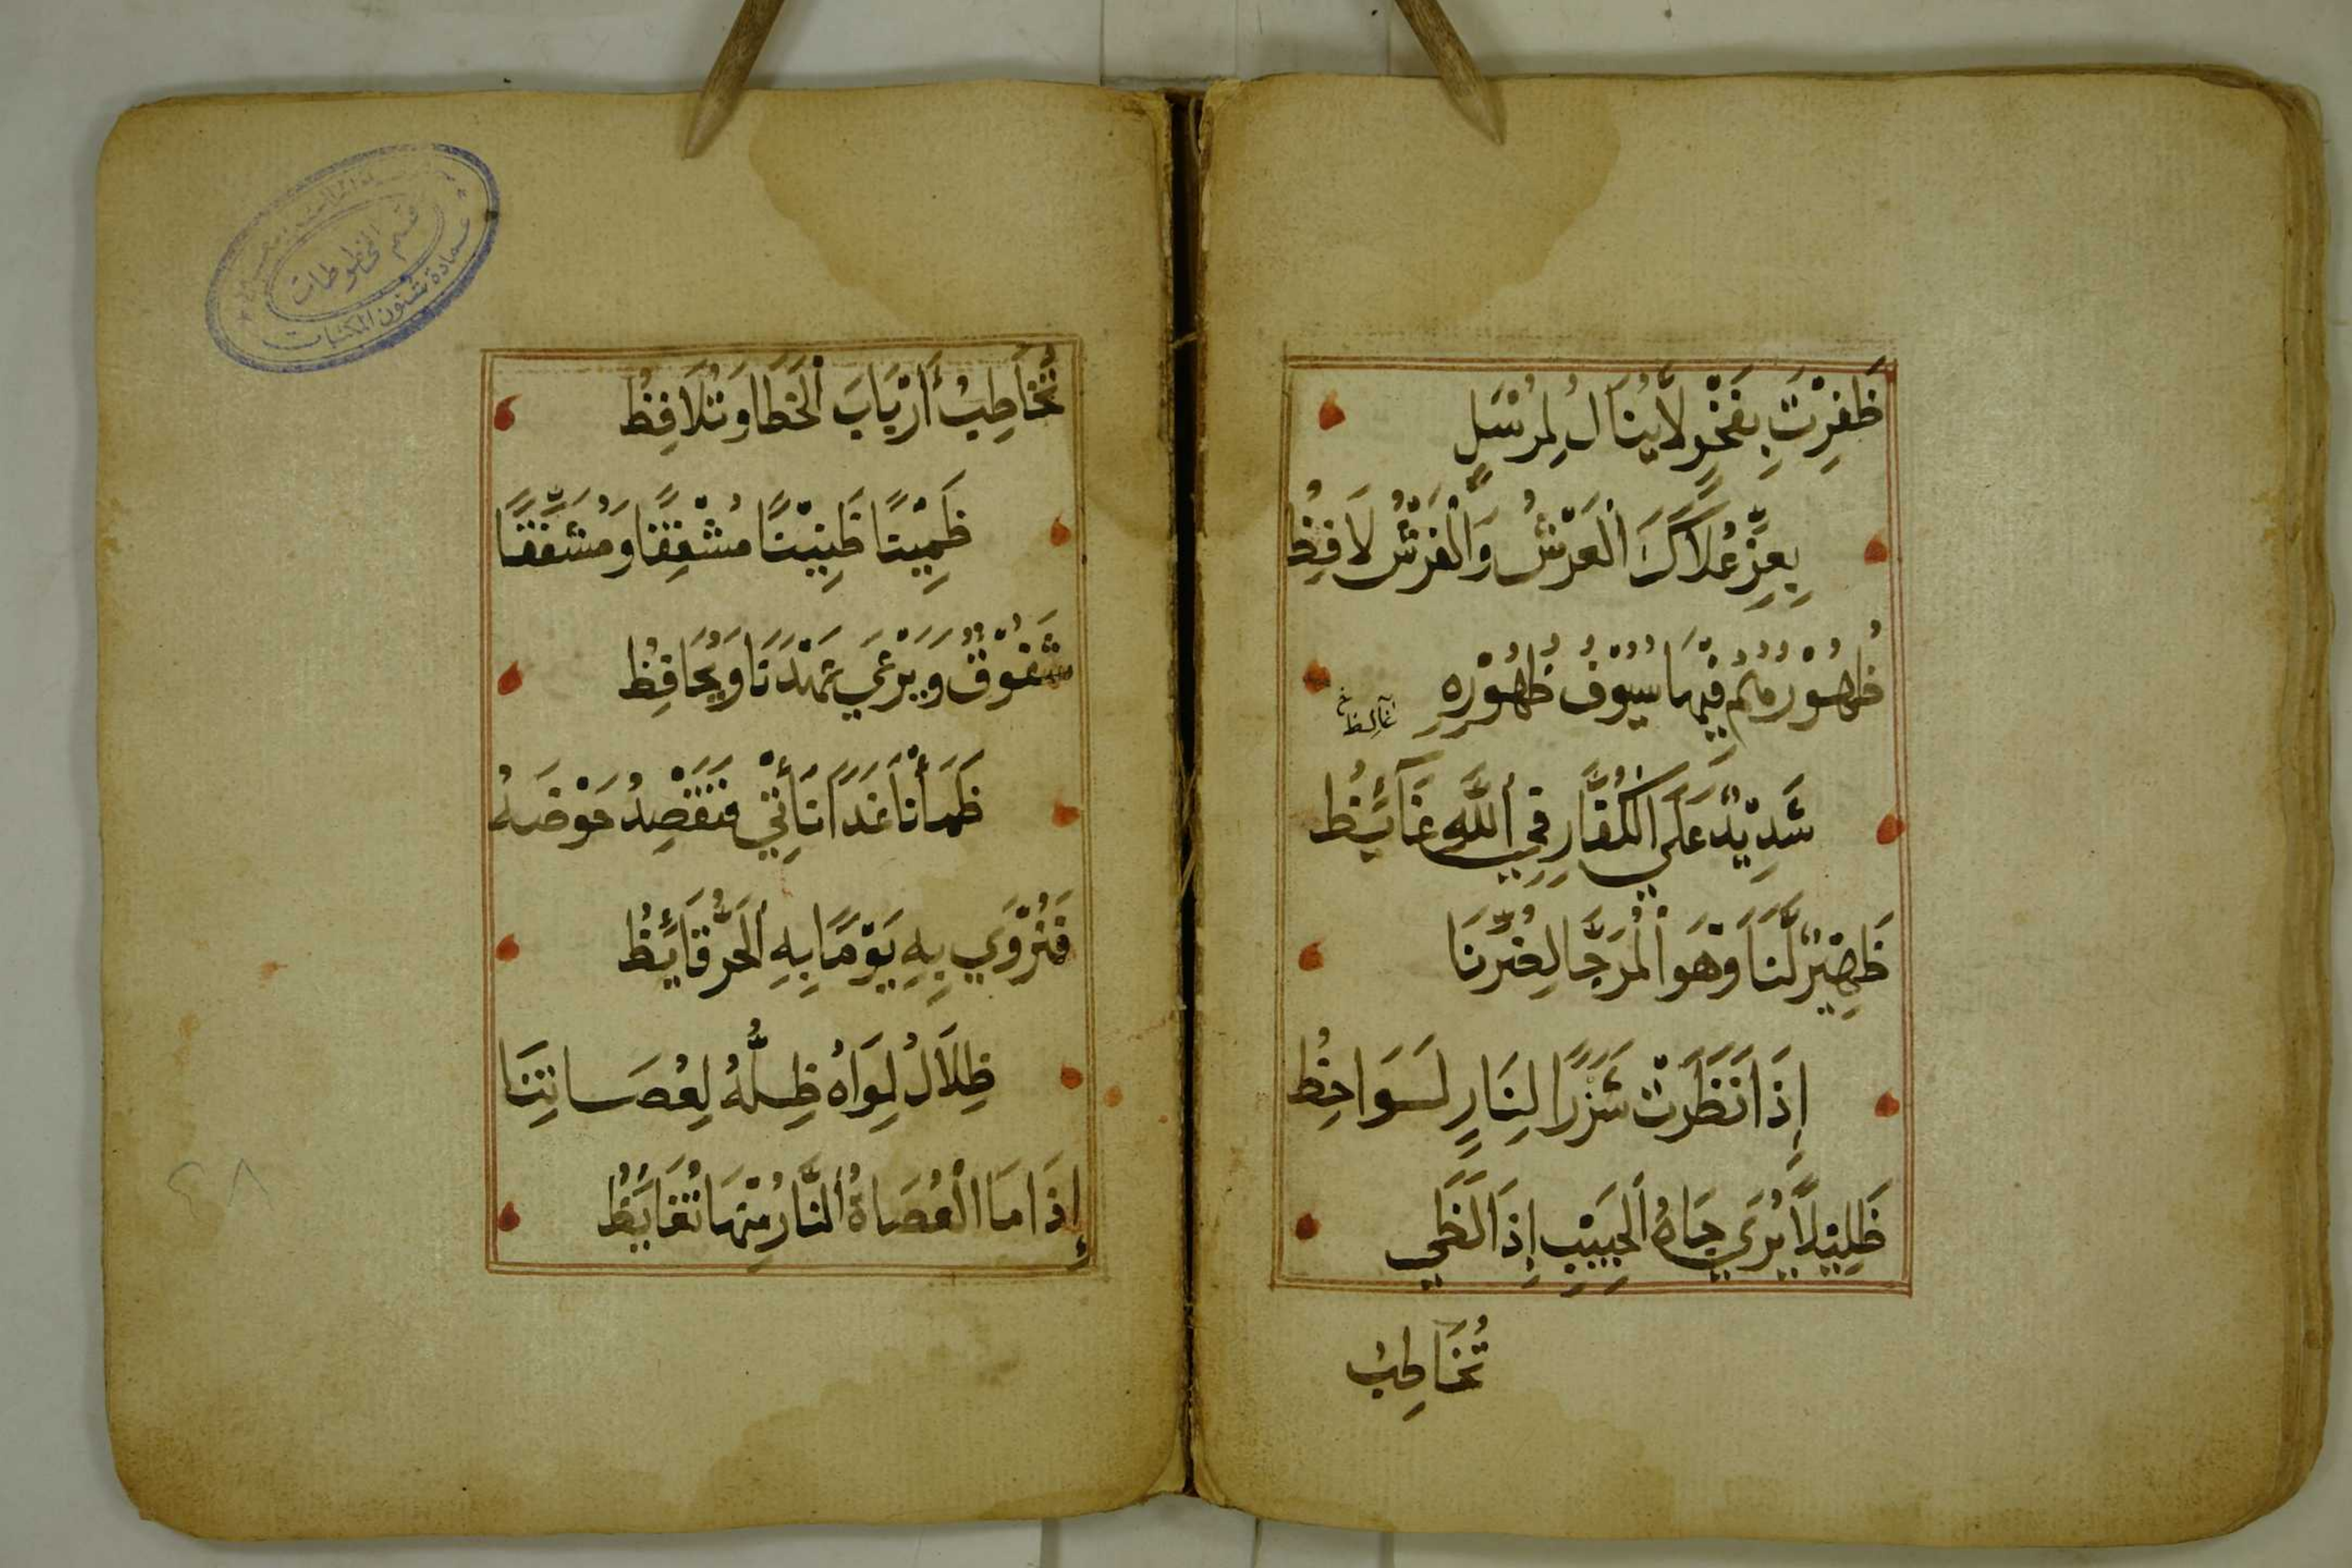 ظَفِرْتَ بِفَخْرٍ لَّا يُنَالُ لِمُرْسَلٍ
بِعِزِّ عُلَاكَ الْعَرْشُ وَالْفَرْشُ لَافِظُ
ظُهُوْرُهُمُ فِيْهَا سُيُوْفُ ظُهُوْرِهِ
شَدِيْدٌ عَلَي الْكُفَّارِ فِي اللَّهِ غَآئِظُ
ظَهِيْرٌ لَّنَا وَهْوَ الْمُرَجَّا لِضُرِّنَا
إِذَا نَظَرَتْ شَزْرًا لِنَارٍ لَوَاحِظُ
ظَلِيْلًا يُرَي جَاهُ الْحَبِيْبِ إِذَا لَظَي
تُخَاطِبُ
تُخَاطِبُ أَرْبَابَ الْخَطَا وَتُلَافِظُ
ظَمِيْتًا ظَنِيْتًا مُشْفِقًا وَمُشَفَّقًا
شَفُوْقٌ وَيَرْعَي عَهْدَنَا وَيُحَافِظُ
ظَمَأْنَا غَدًا نَأْتِي فَنَقْصِدُ حَوْضَهُ
فَنُرْوَي بِهِ يَوْمًا بِهِ الْحَرُّ قَائِظُ
ظِلَالُ لِوَاهُ ظِلُّهُ لِعُصَاتِنَا
إِذَا مَا الْعُصَاةُ النَّارُ مِنْهَا تُغَايِظُ
قسم المخطوطات
عمادة شئون المكتبات
٤٨